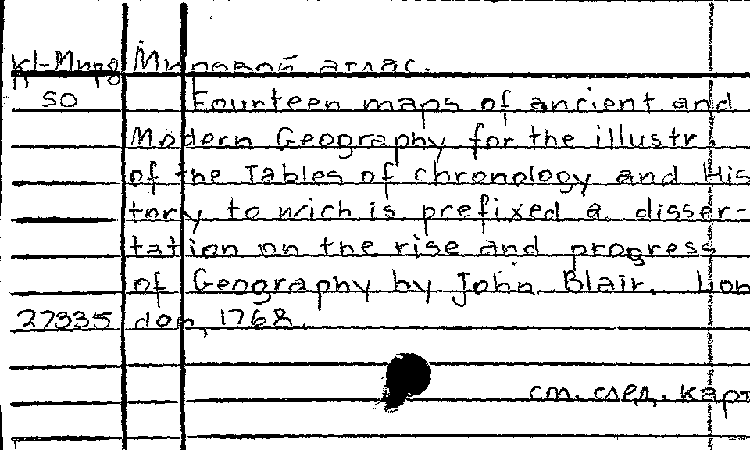 К1-Мир Мировой атлас.
50 Fourteen maps of ancient and
Modern Geography for the illustr.
of the Tables of chronology and His
tory to wich is prefixed a disser-
tation on the rise and progress
of Geography by John Blair. Lon
27335 don, 1768.
см. след. карт